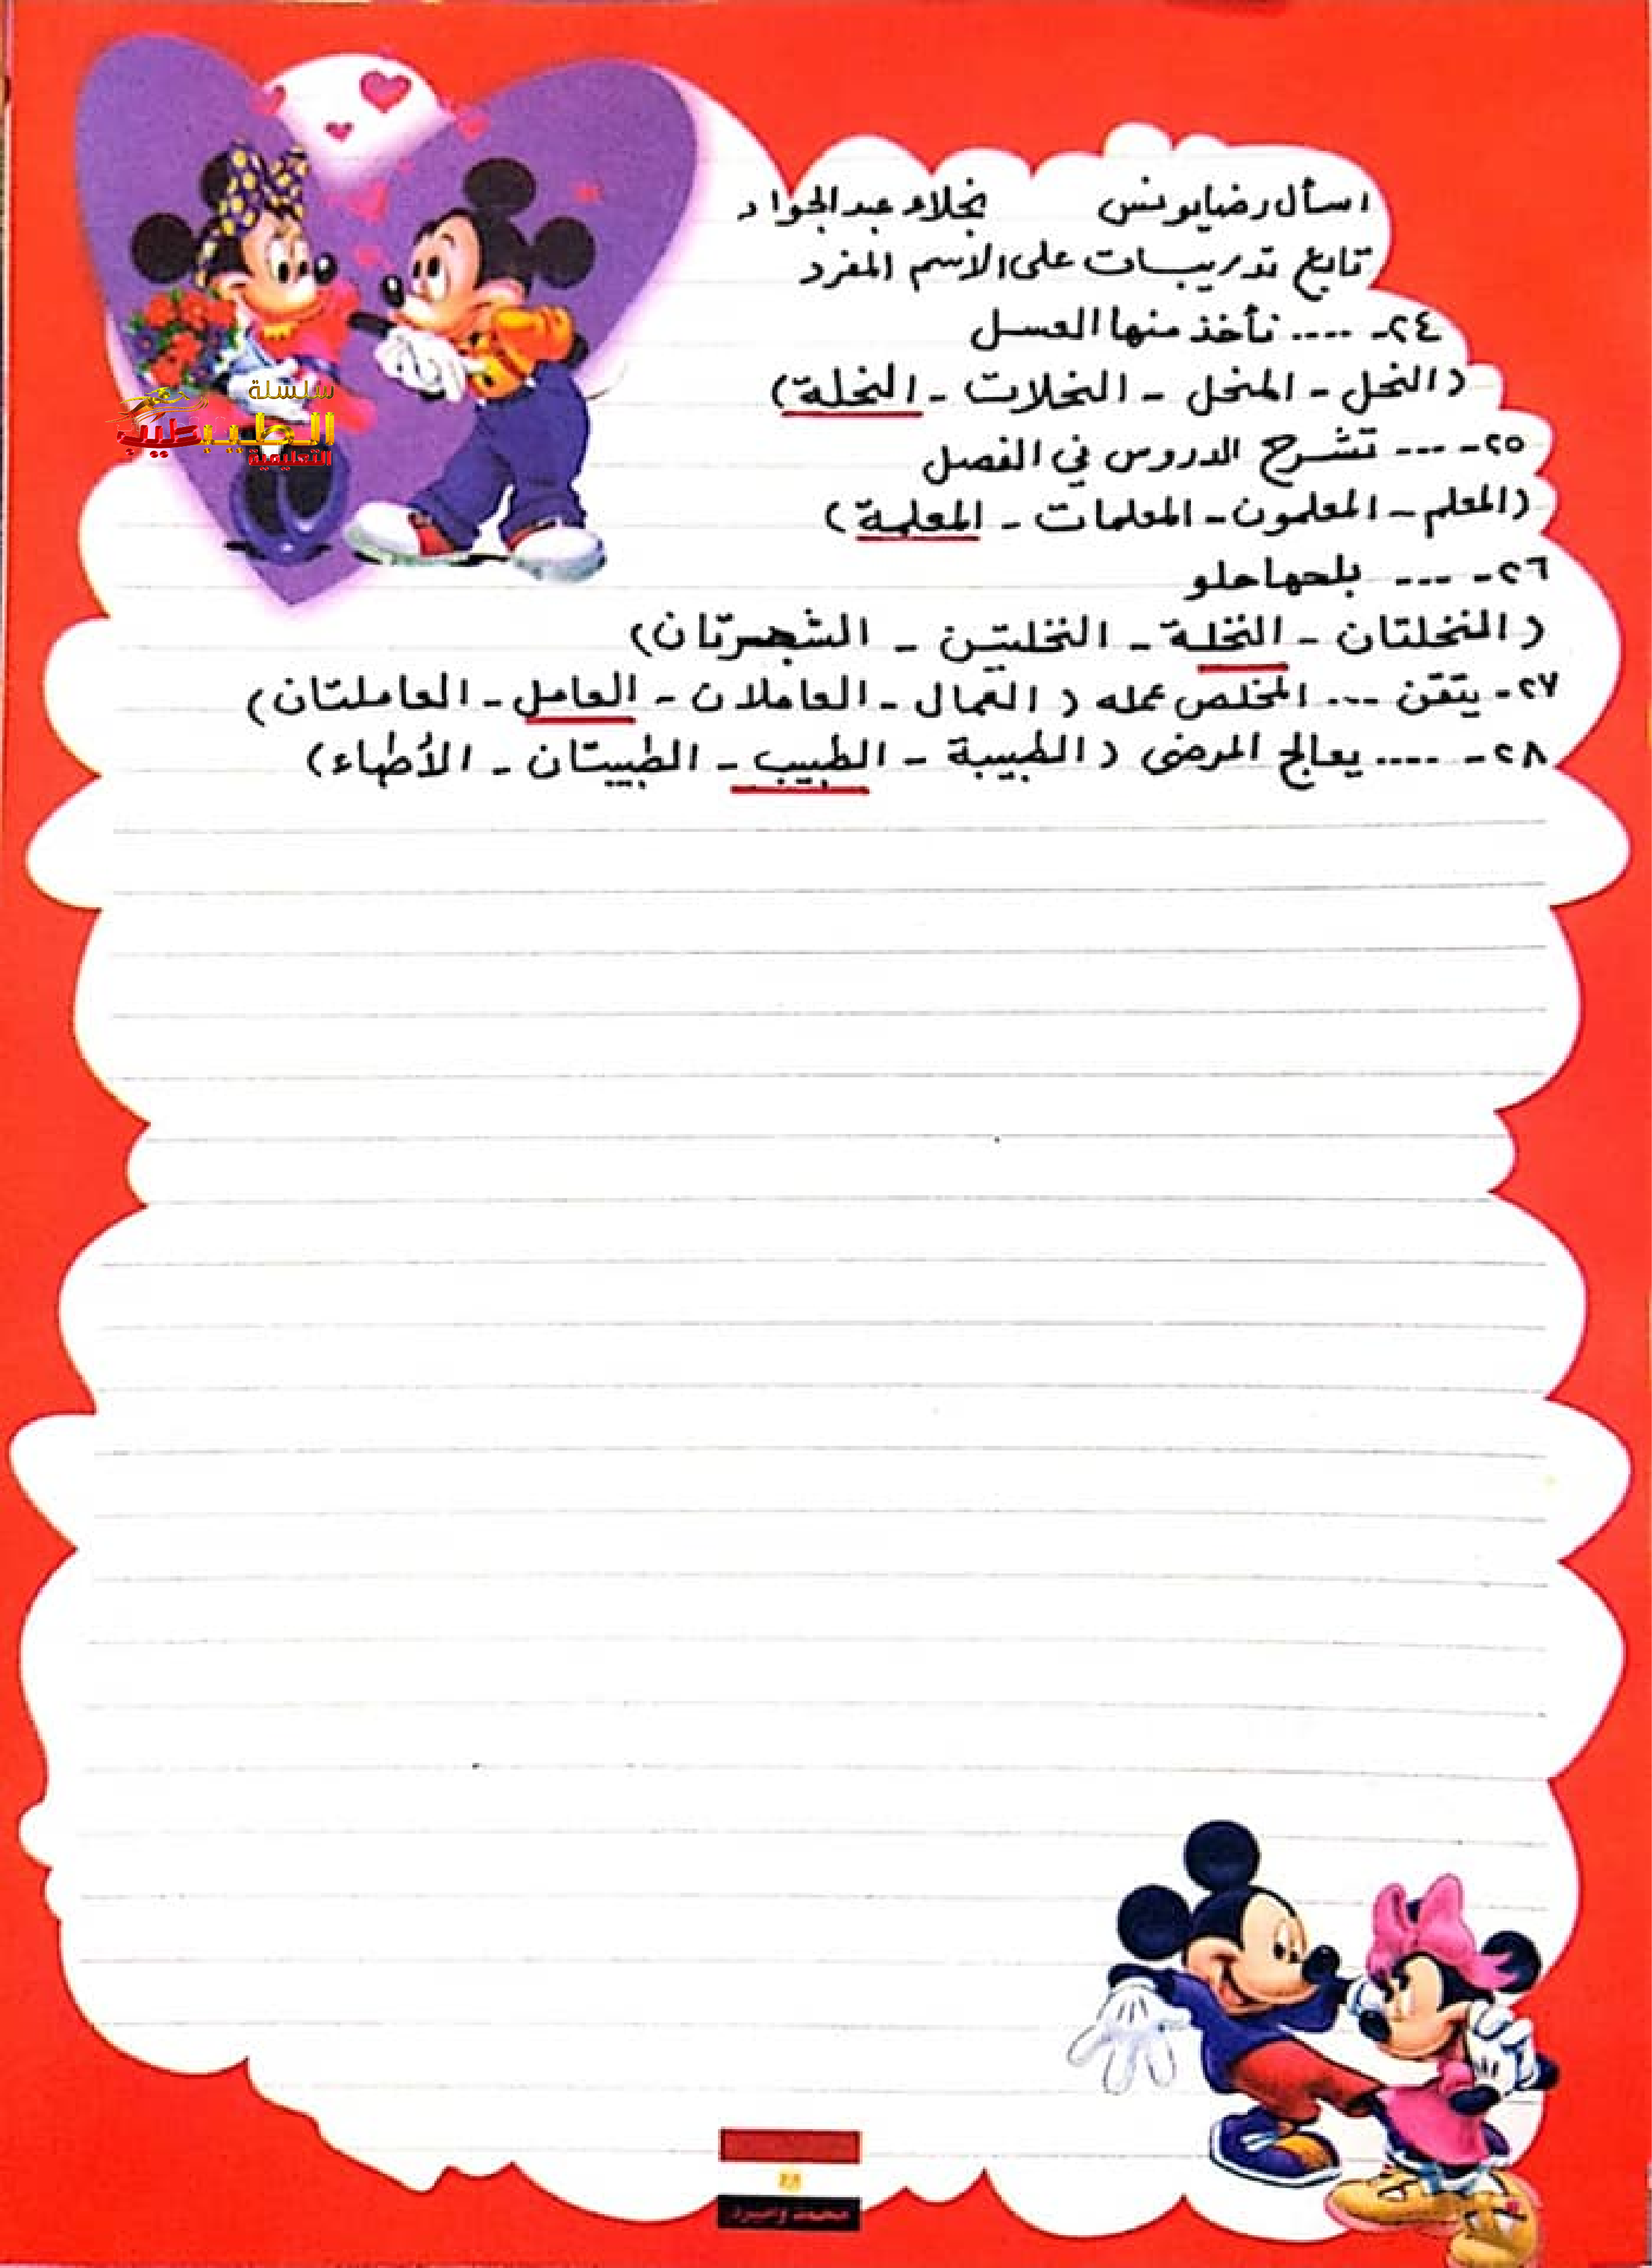 اسأل رضا يونس نجلاء عبد الجواد
تابع تدريبات على الاسم المفرد
٢٤- .... نأخذ منها العسل
(النحل - المنحل - النحلات - النحلة)
٢٥- ... تشرح الدروس في الفصل
(المعلم - المعلمون - المعلمات - المعلمة)
٢٦- ... بلحها حلو
(النخلتان - النخلة - النخلتين - الشجرتان)
٢٧- يتقن ... المخلص عمله (العمال - العاملان - العامل - العاملتان)
٢٨- .... يعالج المرضى (الطبيبة - الطبيب - الطبيبتان - الأطباء)
سلسلة
الطبيب
التعليمية